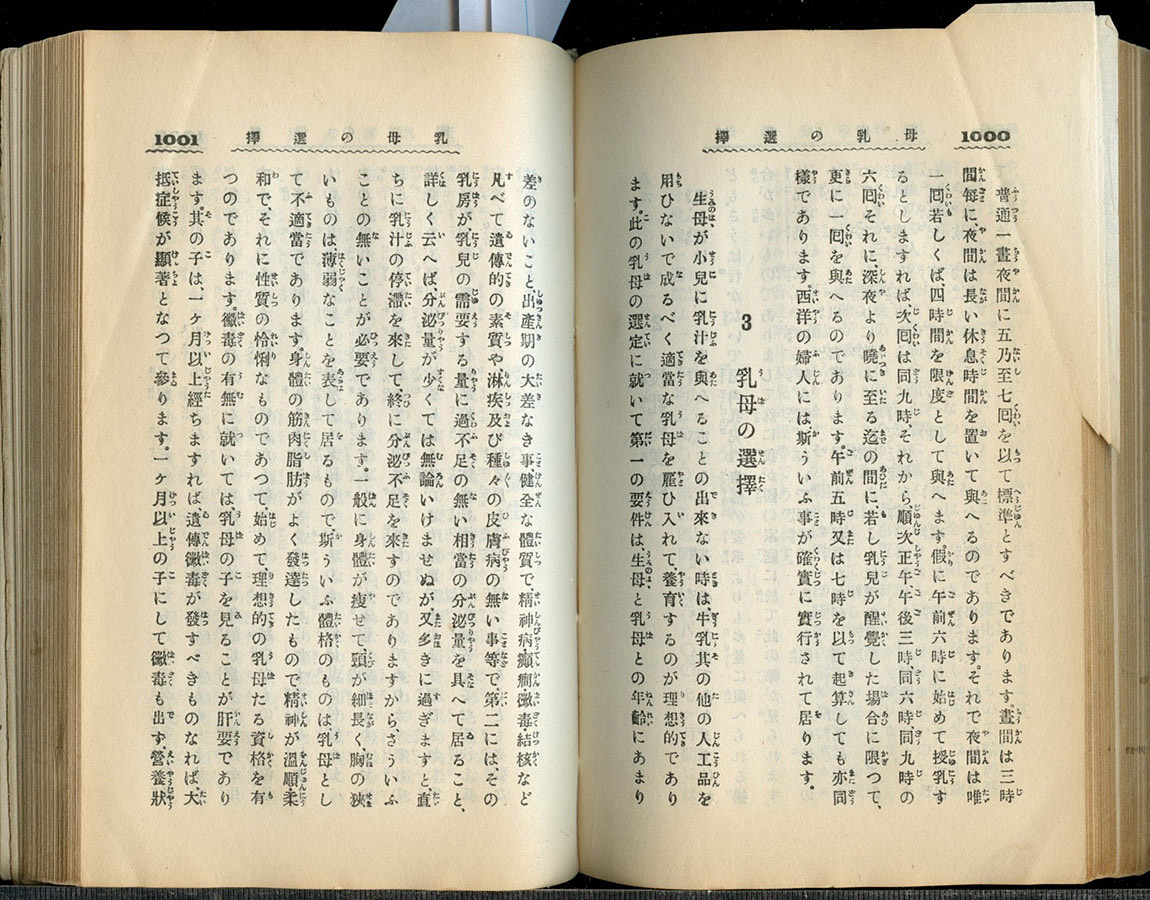 1000
母乳の選擇
普通一晝夜間に五乃至七囘を以て標準とすべきであります。晝間は三時
間每に夜間は長い休息時間を置いて與へるのであります。それで夜間は唯
一囘若しくば、四時間を限度として與へます。假に午前六時に始めて授乳す
るとしますれば、次囘は同九時、それから順次正午午後三時、同六時、同九時の
六囘それに、深夜より曉に至る迄の間に、若し乳兒が醒覺した場合に限つて、
更に一囘を與へるのであります。午前五時又は七時を以て起算しても亦同
樣であります。西洋の婦人には斯ういふ事が確實に實行されて居ります。
3 乳母の選擇
生母が小兒に乳汁を與へることの出來ない時は、牛乳其の他の人工品を
用ひないで成るべく適當な乳母を雇ひ入れて、養育するのが理想的であり
ます。此の乳母の選定に就いて第一の要件は、生母と乳母との年齡にあまり
1001
乳母の選擇
差のないこと、出產期の大差なき事、健全な體質で精神病、癲癇、黴毒、結核など
凡べて遺傳的の素質や淋疾及び種々の皮膚病の無い事等で、第二には、その
乳房が、乳兒の需要する量に過不足の無い相當の分泌量を具へて居ること、
詳しく云へば、分泌量が少くては無論いけませぬが又多きに過ぎますと、直
ちに乳汁の停滯を來して、終に分泌不足を來すのでありますから、さういふ
ことの無いことが必要であります。一般に身體が瘦せて、頸が細長く、胸の狹
いものは、薄弱なことを表して居るもので、斯ういふ體格のものは乳母とし
て不適當であります。身體の筋肉脂肪がよく發達したもので、精神が溫順、柔
和で、それに性質の怜悧なものであつて始めて、理想的の乳母たる資格を有
つのであります。黴毒の有無に就いては、乳母の子を見ることが肝要であり
ます。其の子は、一ヶ月以上經ちますれば、遺傳黴毒が發すべきものなれば、大
抵症候が顯著となつて參ります。一ヶ月以上の子にして黴毒も出す、營養狀